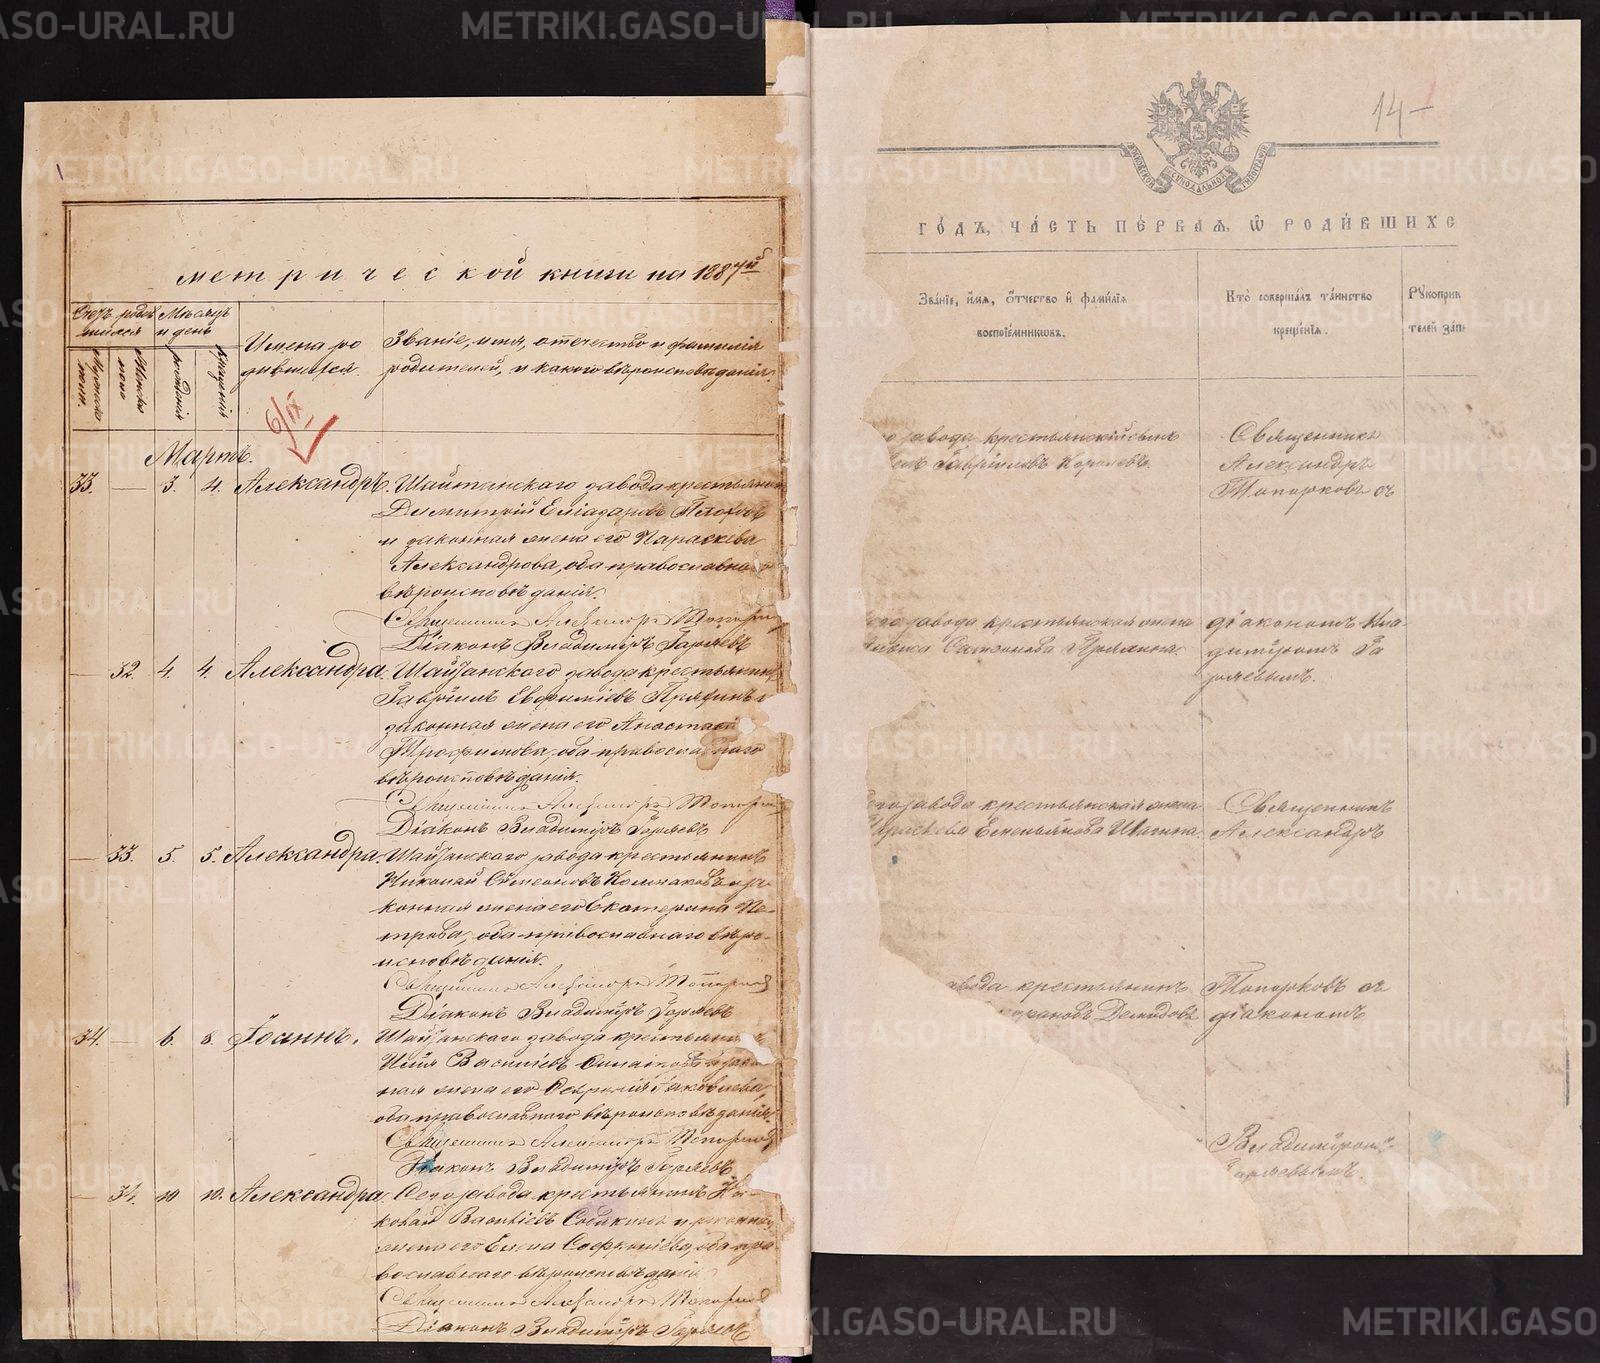 метрической книги на 1887й
Счетъ родившихся
Мѣсяцъ и день
Имена родившихся.
Званіе, имя, отчество и фамилія
родителей, и какого вѣроисповѣданія.
Мужска
Женска
рожденія
крещенія
6/IX
Мартъ.
33. — 3. 4. Александръ. Шайтанскаго завода крестьянин
Димитрій Еліазаровъ
и законная жена его Параскева
Александрова, оба православнаго
вѣроисповѣданія.
Священникъ Александръ Топорков
Діаконъ Владиміръ Горяевъ
— 32. 4. 4. Александра. Шайтанскаго завода крестьянинъ
Гавріилъ Евфиміевъ Прянинъ и
законная жена его Анастасія
Трофимова, оба православнаго
вѣроисповѣданія.
Священникъ Александръ Топорков
Діаконъ Владиміръ Горяевъ
— 33. 5. 5. Александра. Шайтанскаго завода крестьянинъ
Николай Сѵмеоновъ и за-
конная жена его Екатерина Пе-
трова, оба православнаго вѣро-
исповѣданія.
Священникъ Александръ Топорков
Діаконъ Владиміръ Горяевъ
34. — 6. 8. Іоаннъ. Шайтанскаго завода крестьянинъ
Илія Васильевъ и закон
ная жена его Іаковлева,
оба православнаго вѣроисповѣданія.
Священникъ Александръ Топорков
Діаконъ Владиміръ Горяевъ
— 34. 10 10. Александра. Сего завода крестьянинъ Ни-
колай Васильевъ Собакинъ и законная
жена его Елена Софроніева, оба пра
вославнаго вѣроисповѣданія
Священникъ Александръ Топорков
Діаконъ Владиміръ Горяевъ
14-
ГОДЪ, ЧАСТЬ ПЕРВАЯ, Ѡ РОДИВШИХС
Званіе, имя, отчество и фамилія
воспріемниковъ.
Кто совершалъ таинство
крещенія.
Рукоприк
телей запи
о завода крестьянскій сынъ
Гавріиловъ Королевъ.
Священникъ
Александръ
Топорковъ съ
завода крестьянская жена
Прянина.
діакономъ Вла-
диміромъ Го
ряевымъ.
го завода крестьянская жена
Параскева Емельянова
Священникъ
Александръ
авода крестьянинъ
Демидовъ
Топорковъ съ
діакономъ
Владиміромъ
Горяевымъ.
METRIKI.GASO-URAL.RU